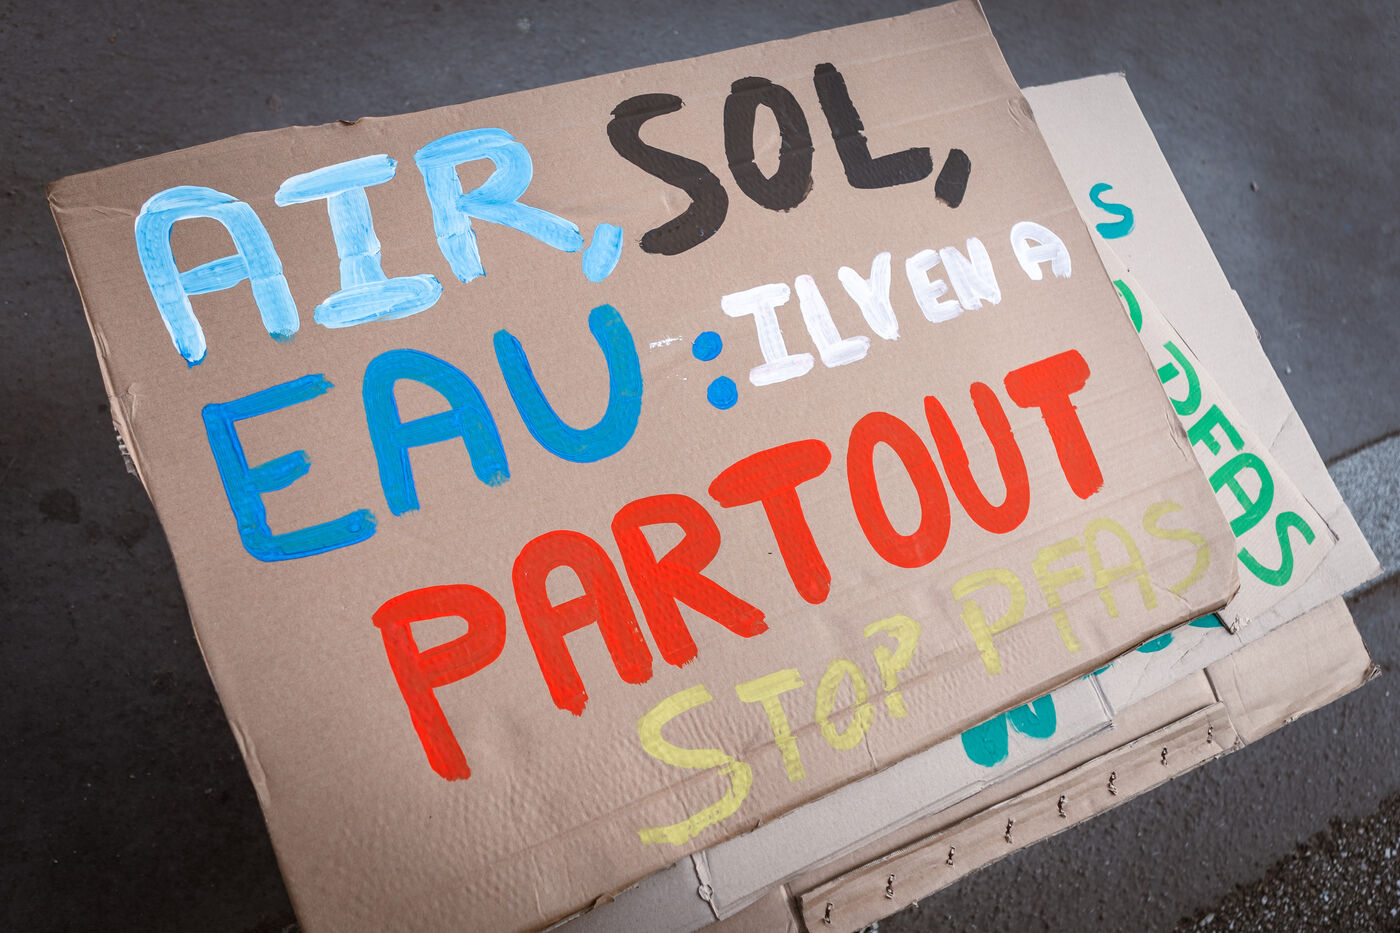 AIR, SOL,
EAU : IL Y EN A
PARTOUT
STOP PFAS
S
PFAS